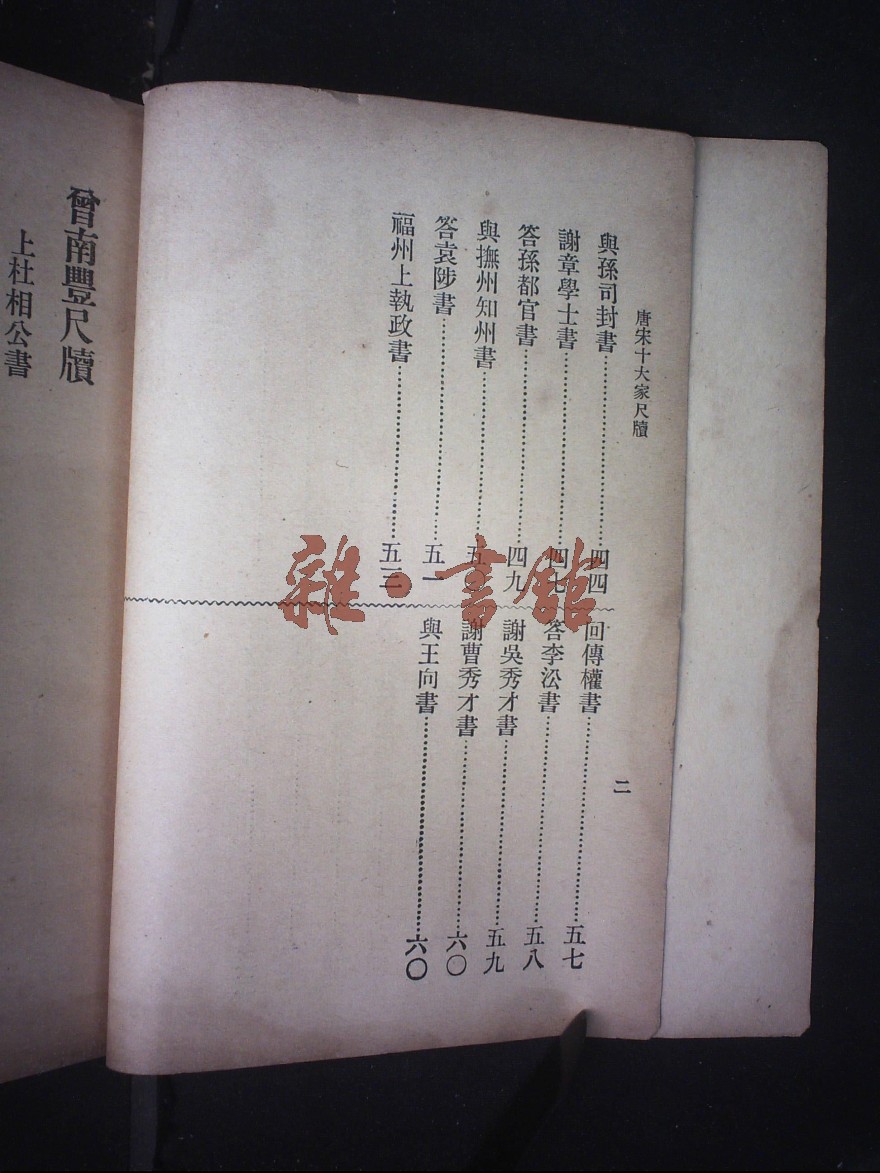 唐宋十大家尺牘
二
與孫司封書……四四
謝章學士書……四七
答孫都官書……四九
與撫州知州書……五
答袁陟書……五一
福州上執政書……五三
回傳權書……五七
答李沿書……五八
謝吳秀才書……五九
謝曹秀才書……六〇
與王向書……六〇
曾南豐尺牘
上杜相公書
雜·書館